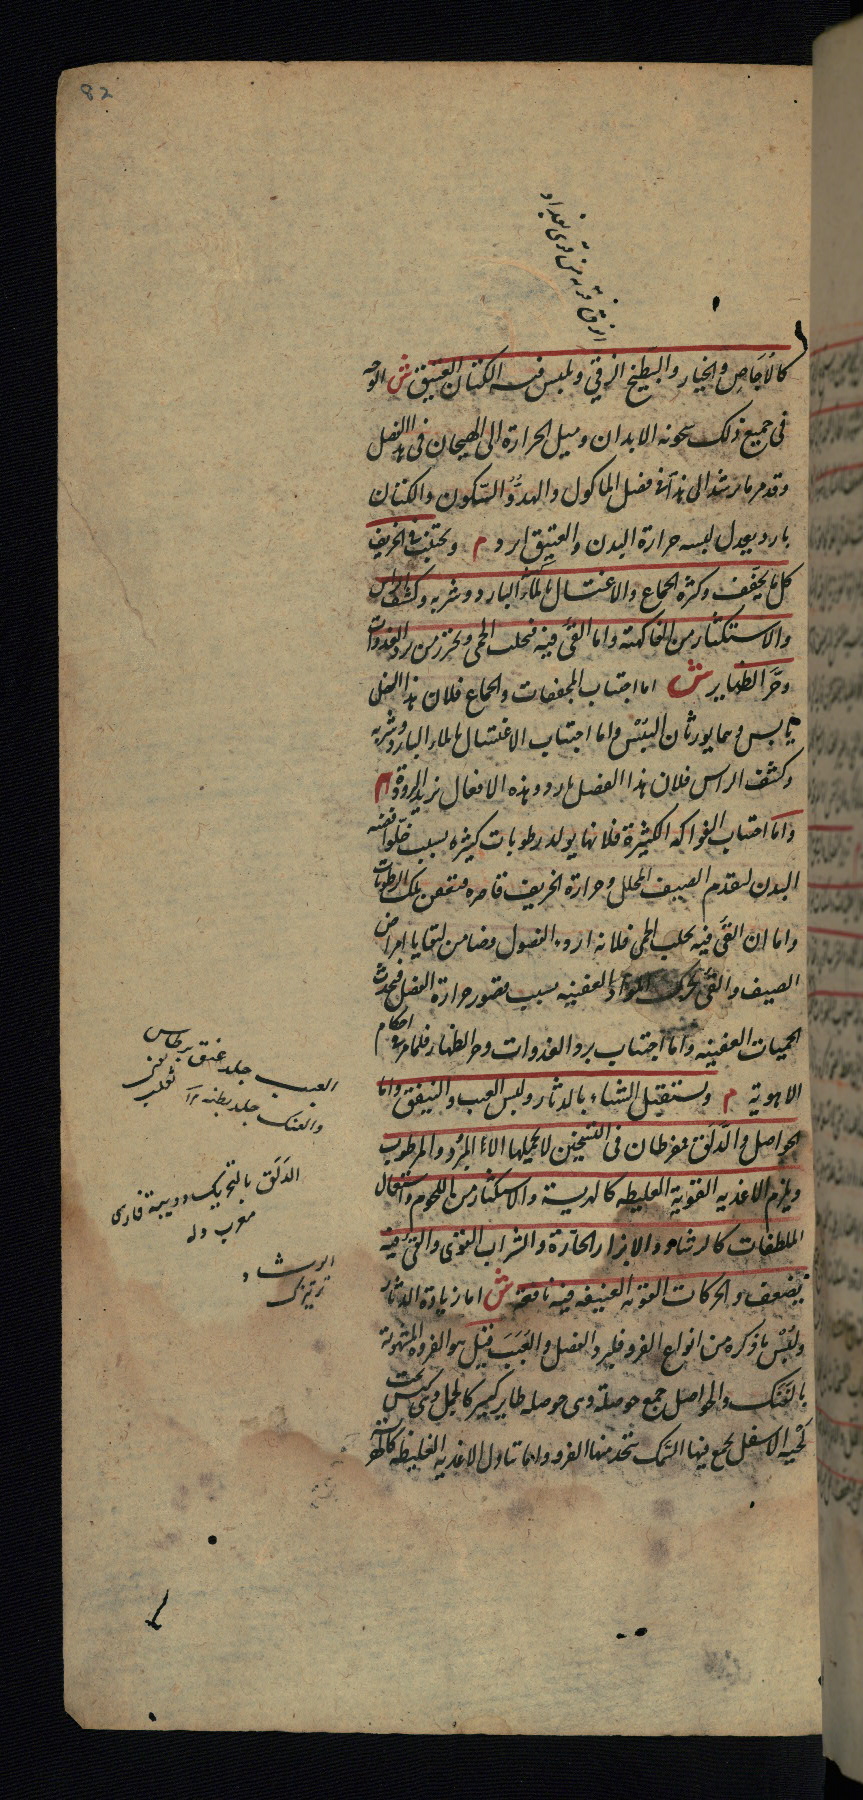 82
ازق قرية من قرى بغداد
كالاجاص والخيار والبطيخ الزقي ويلبس فيه الكتان العتيق ش الوجه
فى جميع ذلك سخونه الابدان وميل الحرارة الى الهيجان فى هذا الفصل
وقد مر ما يرشد الى هذا فى فصل الماكول والهدو السكون والكتان
بارد يعدل لبسه حرارة البدن والعتيق ابرد م ويجتنب فى الخريف
كل ما يجفف وكثرة الجماع والاغتسال بالماء البارد وشربه وكشف الراس
والاستكثار من الفاكهة واما القئ فيه فيجلب الحمى ويحترز من برد الغدوات
وحر الظهاير ش اما اجتناب المجففات والجماع فلان هذا الفصل
يابس وهما يورثان اليبس واما اجتناب الاغتسال بالماء البارد وشربه
وكشف الراس فلان هذا الفصل بارد وهذه الافعال تزيد البرودة م
واما اجتناب الفواكه الكثيرة فلانها يولد رطوبات كثيره بسبب
البدن لتقدم الصيف المحلل وحرارة الخريف قاصره فتعفن تلك الرطوبات
واما ان القئ فيه يجلب الحمى فلانه اردء الفصول وضامن لبقايا امراض
الصيف والقئ يحرك المواد العفنيه بسبب قصور حرارة الفصل فيحدث
الحميات العفنيه واما اجتناب برد الغدوات وحر الظهاير فلما مر فى احكام
الاهوية م ويستقبل الشتاء بالدثار ولبس العبب والنيفق واما
الحواصل والدلق مفرطان فى التسخين لا يحملها الا المبرود والمرطوب
ويلزم الاغذيه القوية الغليظه كالهريسة والاستكثار من اللحوم واستعمال
الملطفات كالرشاد والابزار الحارة والشراب القوى والقئ فيه
يضعف والحركات القويه العنيفه فيه نافعة ش اما زيادة الدثار
ولبس ما ذكره من انواع الفرو فلبرد الفصل والعبب قيل هو الفروة المشهورة
بالفنك والحواصل جمع حوصلة وهى حوصله طاير كبير كالجمل وهى كيس تحت
لحيه الاسفل يجمع فيها السمك يتخذ منها الفرو واما تناول الاغذيه الغليظه
العبب جلد عنق برطاس
والفنك جلد بطنه
الدلق بالتحريك دويبة فارسى
معرب دله
الرشاد
ترتيزك